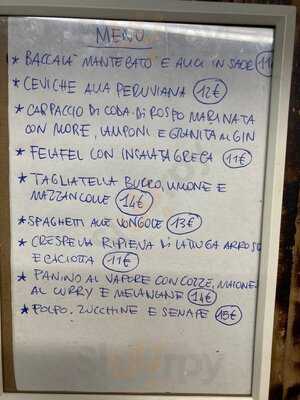 MENU
* BACCALA' MANTECATO E ALICI IN SAOR 11
* CEVICHE ALLA PERUVIANA 12€
* CARPACCIO DI CODA DI ROSPO MARINATA
CON MORE, LAMPONI E GRANITA AL GIN
* FELAFEL CON INSALATA GRECA 11€
* TAGLIATELLA BURRO, LIMONE E
MAZZANCOLLE 14€
* SPAGHETTI ALLE VONGOLE 13€
* CRESPELLA RIPIENA DI LATTUGA ARROSTO
E CACIOTTA 11€
* PANINO AL VAPORE CON COZZE, MAIONESE
AL CURRY E MELANZANE 14€
* POLPO, ZUCCHINE E SENAPE 15€